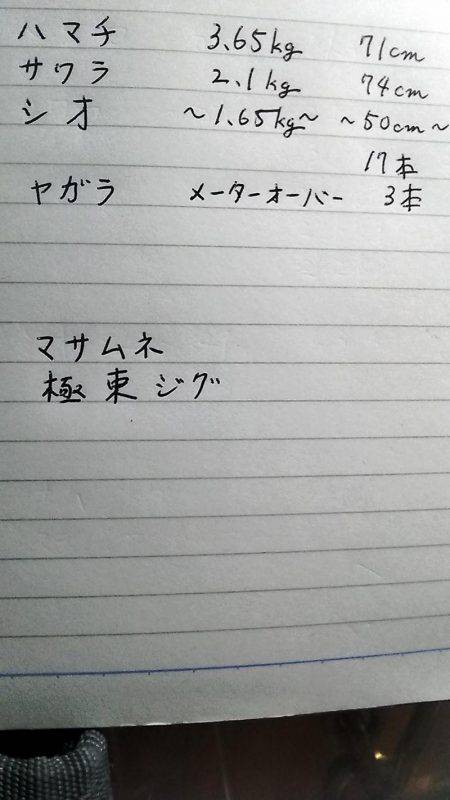 ハマチ 3.65kg 71cm
サワラ 2.1kg 74cm
シオ ~1.65kg~ ~50cm~
17本
ヤガラ メーターオーバー 3本
マサムネ
極東ジグ